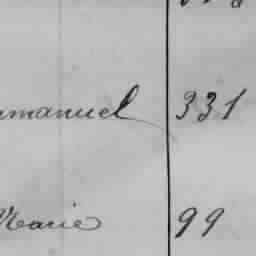 mmanuel 331
Marie 99